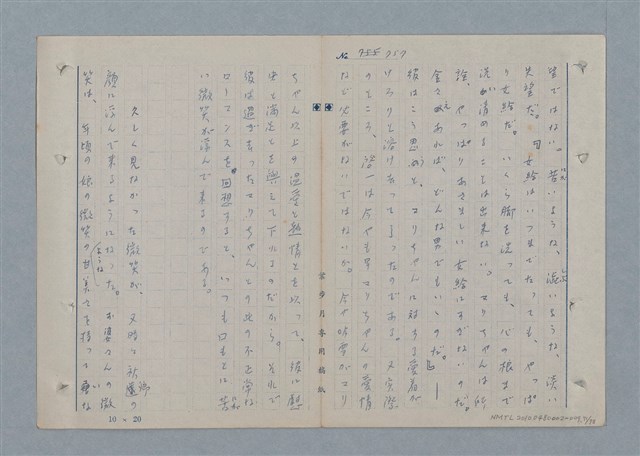 № 755 757
皆ではない。昔いような、渋いような、淡い
失望だ。女給はいつまでたっても、やっぱ
り女給だ。いくら脚を洗っても、心の根まで
洗い清めることは出来ない。マリちゃんは所
詮、やっぱりあさましい女給にすぎないのだ。
金さえあれば、どんな男でもいゝのだ。』——
彼はこう思ふと、マリちゃんに対する愛着が
けろりと溶けさってしまったのである。又実際
のところ、浩一は今やも早マリちゃんの愛情
など必要がないではないか。今や吟雪がマリ
ちゃん以上の温愛と熱情とを以って、彼に慰
安と満足とを与えて下れるのだから。それで
彼は過ぎ去ったマリちゃんとの此の不正常な
ローマンスを回想すると、いつも口もとに苦
い微笑が浮んで来るのである。
久しく見なかった微笑が、又時々秋
顔に浮んで来るようになった。お婆さんの微
笑は、年頃の娘の微笑の甘美さを持って
葉步月專用稿紙
10×20